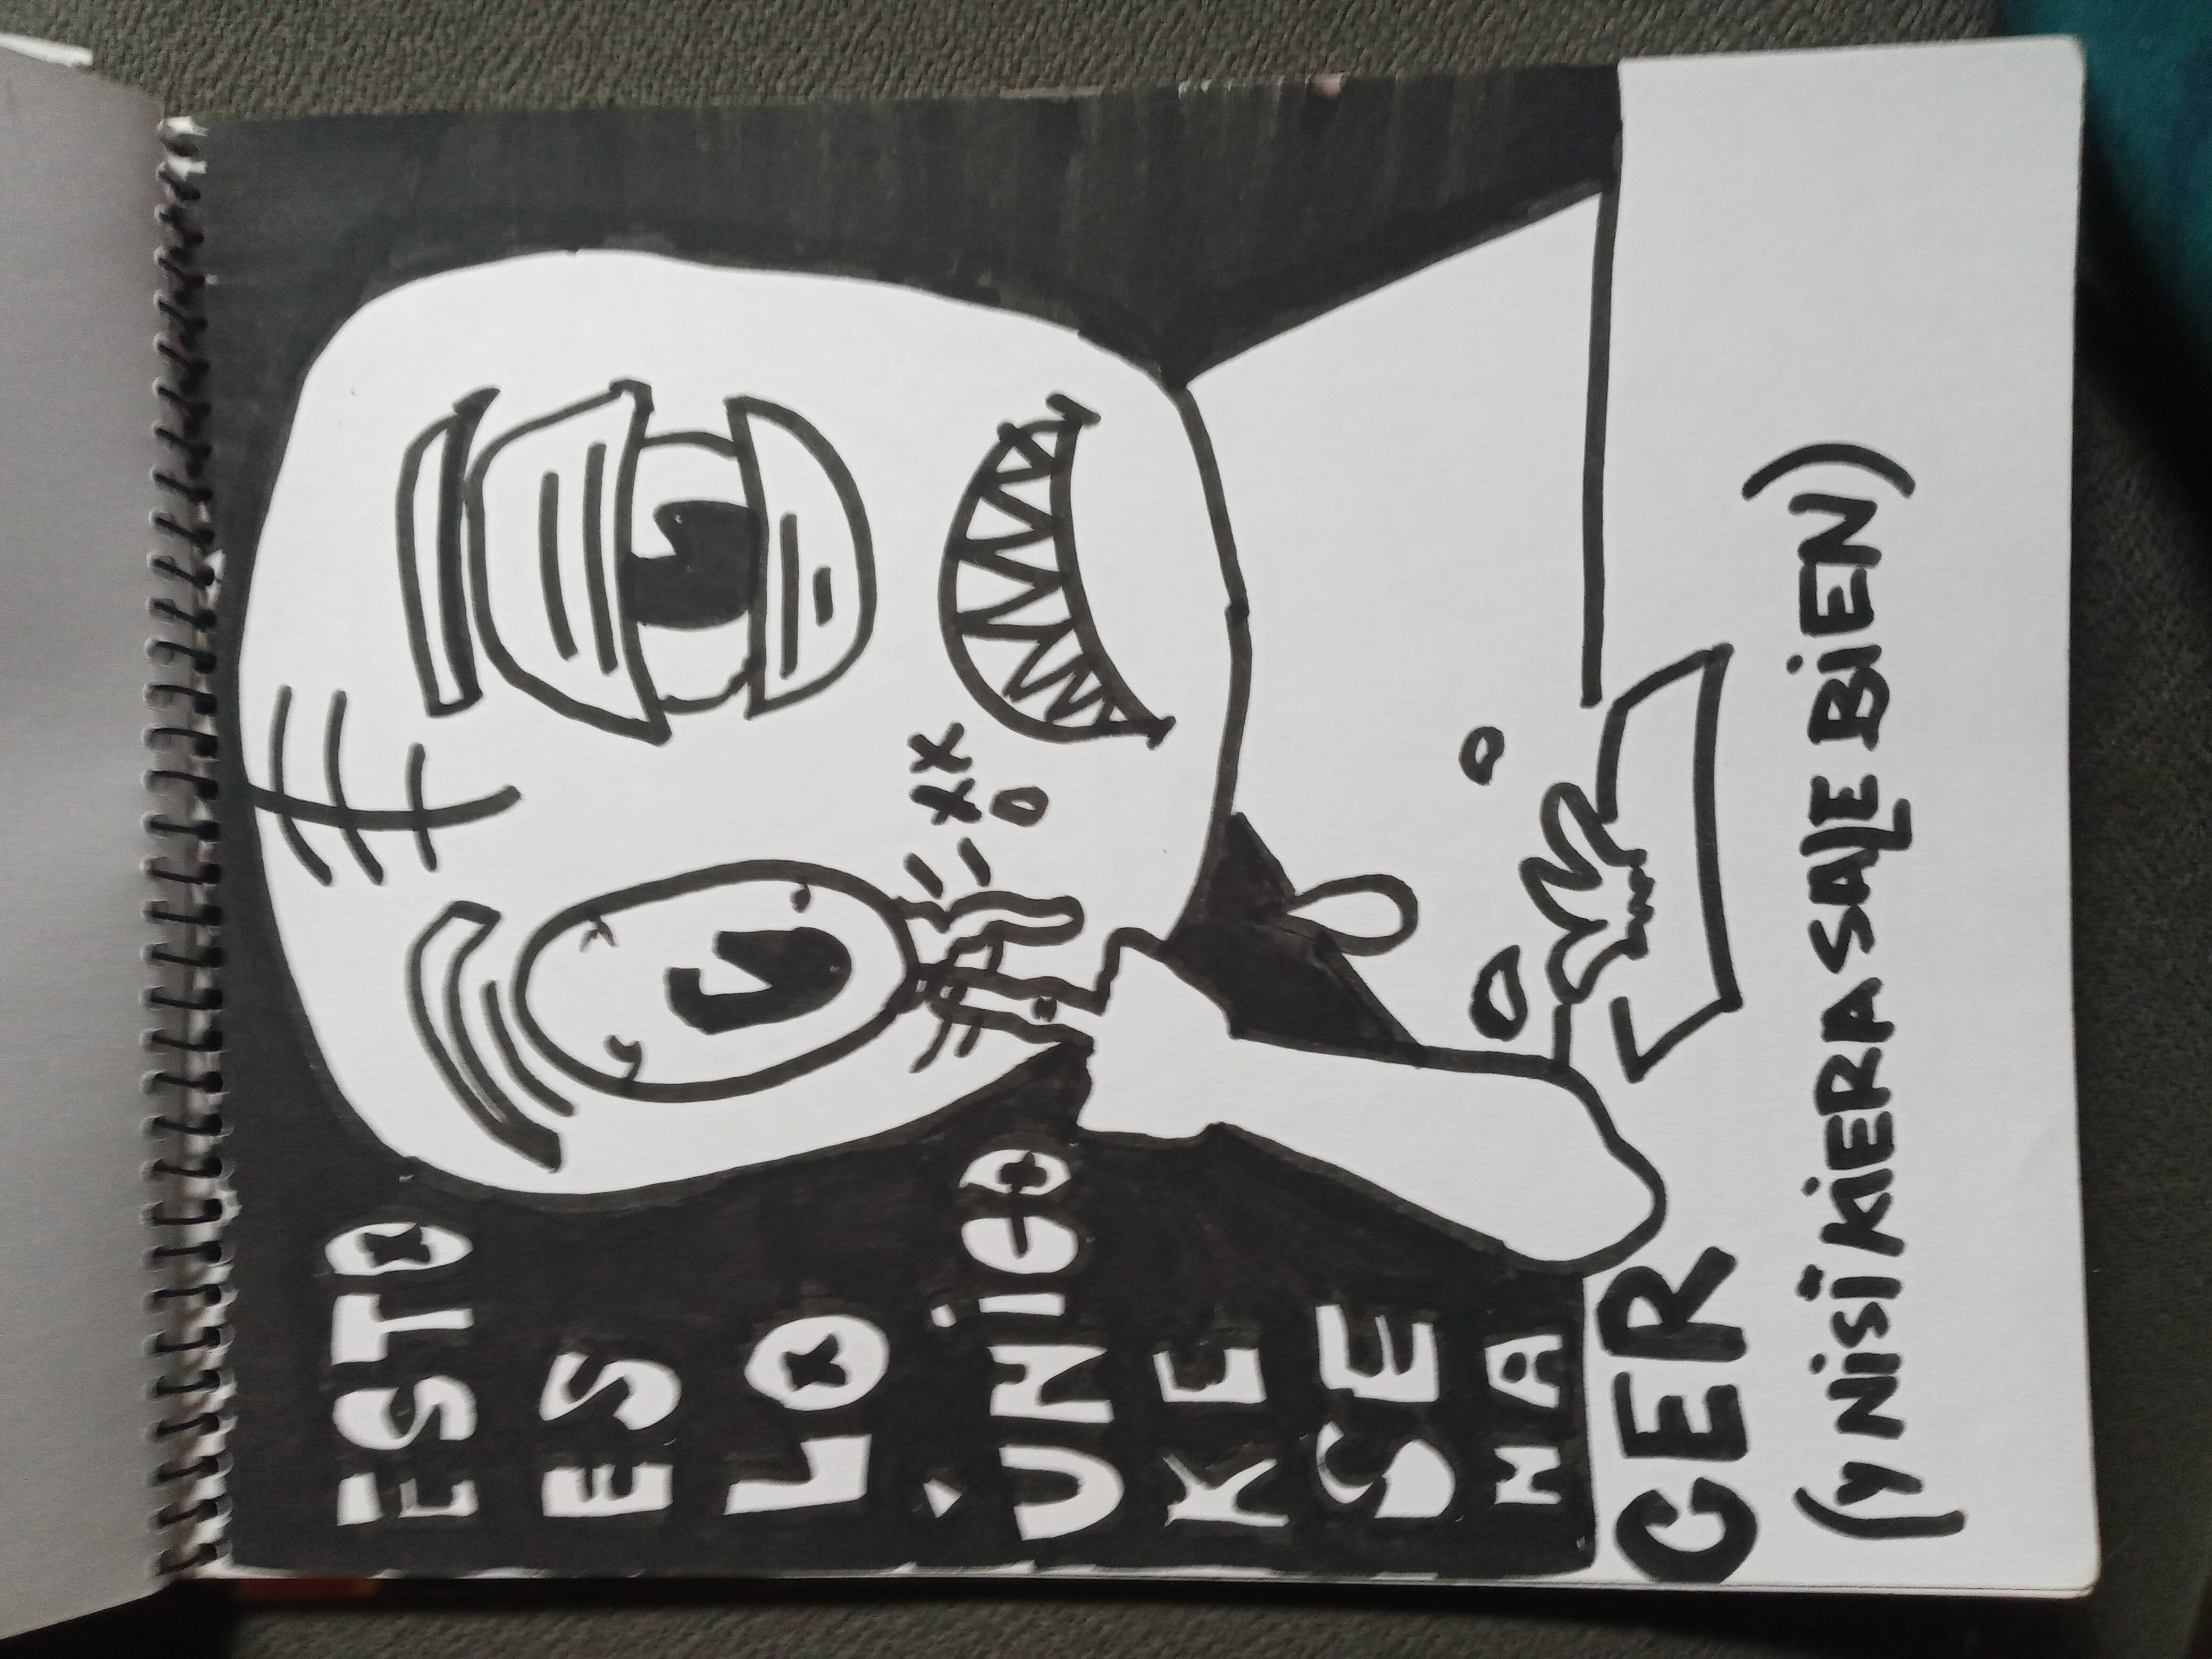 ESTO
ES
LO
ÚNICO
KE
SE
HA
CER
XX
O
(Y NISI KIERA SALE BIEN)